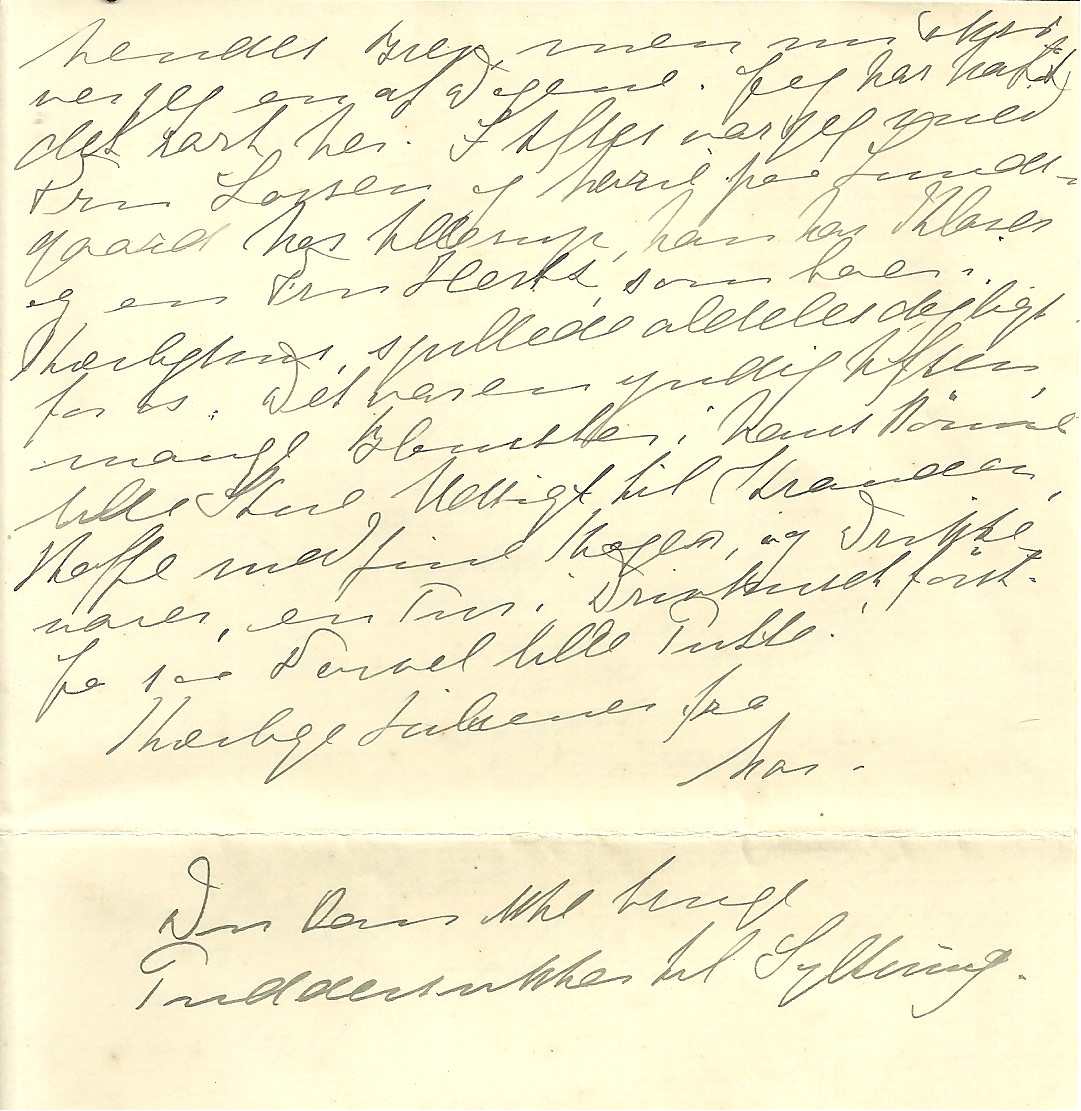 hendes Brev, men nu skri
ver jeg en af Dagene. Jeg har haft
det rart her. I Aftes var jeg med
Fru Larsen og henne paa Lunds-
gaard hos Ellerup, han har Klaver
og en Fru Hertz, som bor i
Kærligheds, spillede aldeles dejligt
for os. Det var en yndig Aften,
mange Blomster i hans kønne
lille Stue, Udsigt til Stranden,
Kaffe med fine Kager, og Drikke
varer, en Tur i
Ja saa Farvel lille Tutte.
Kærlige Hilsener fra
Mor.
Du kan ikke bruge
Puddersukker til Syltning.